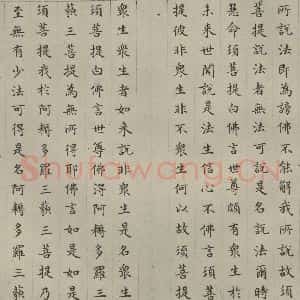 說法即為謗佛不能解我所說故須
菩提說法者無法可說是名說法爾時
慧命須菩提白佛言世尊頗有眾生於
未來世聞說是法生信心不佛言須菩
提彼非眾生非不眾生何以故須菩提
眾生眾生者如來說非眾生是名眾生
須菩提白佛言世尊佛得阿耨多羅三
藐三菩提為無所得耶佛言如是如是
須菩提我於阿耨多羅三藐三菩提乃
至無有少法可得是名阿耨多羅三藐
Shufawang.CN